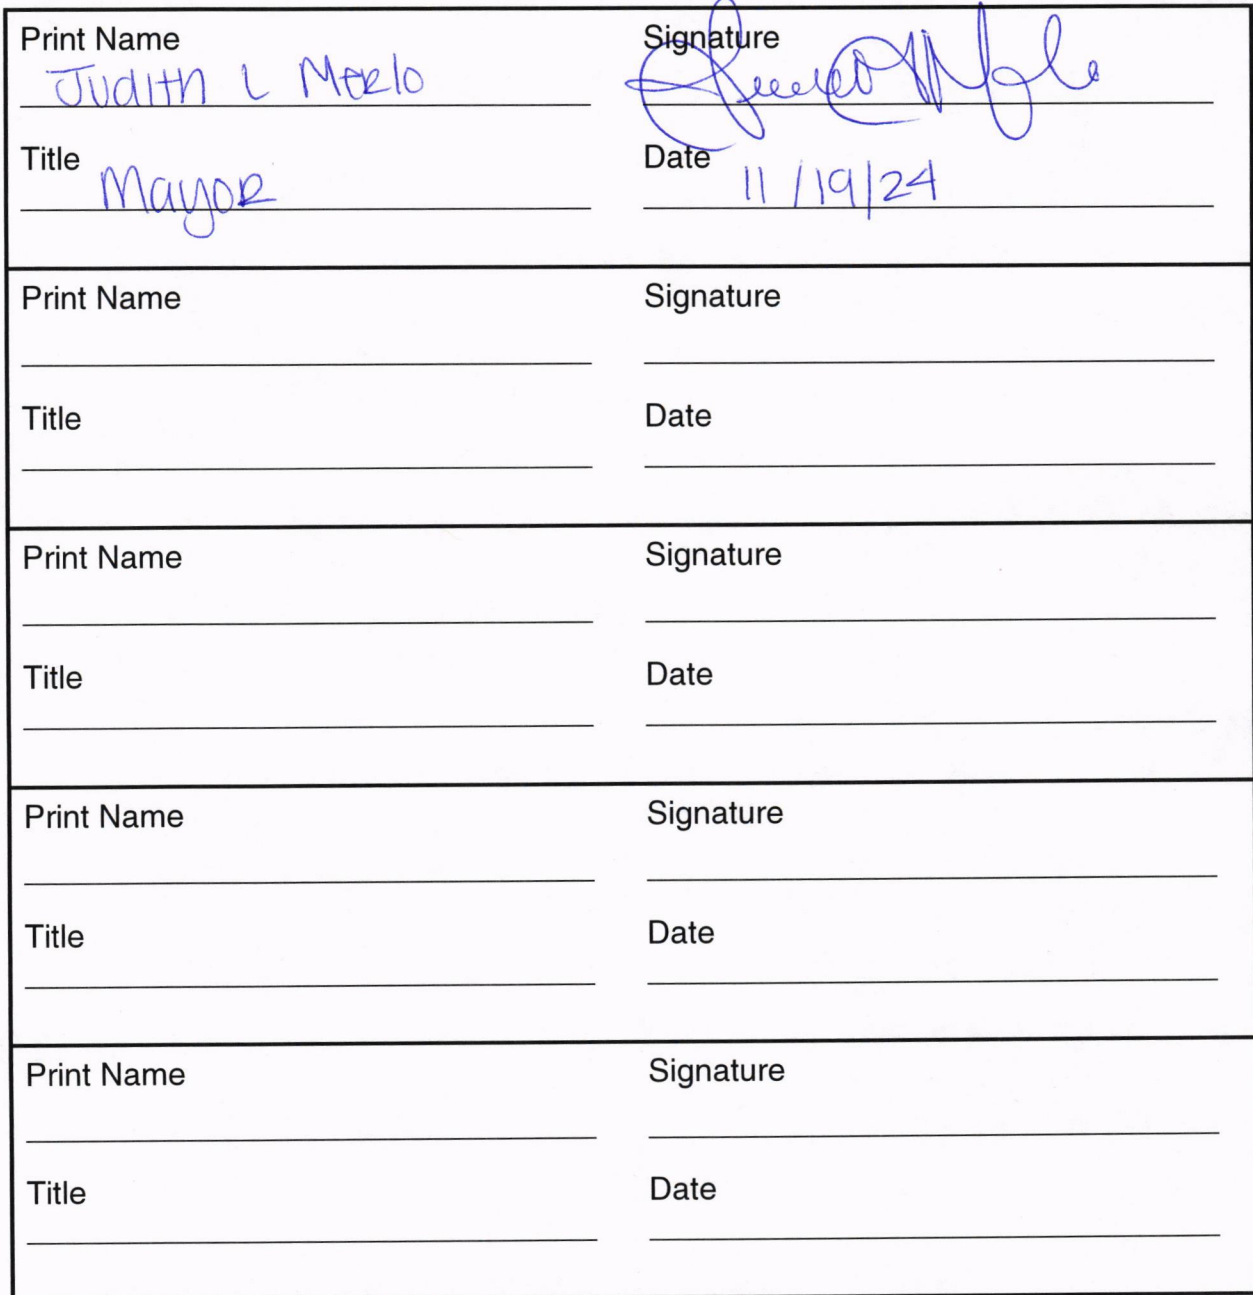 Print Name Signature
Judith L Merlo
Title Date
Mayor 11/19/24
Print Name Signature
Title Date
Print Name Signature
Title Date
Print Name Signature
Title Date
Print Name Signature
Title Date